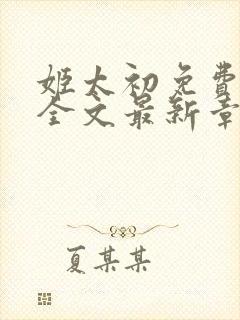 姬太初免費
全文最新章
夏某某